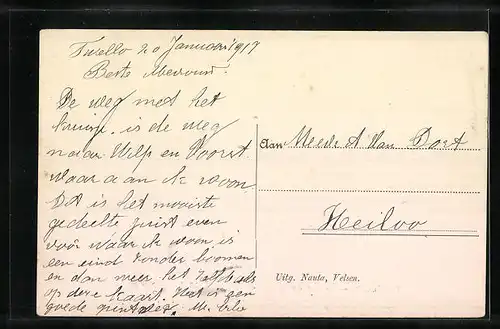 Twello 20 Januari 1917
Beste Mevrouw.
De weg met het
kruisje is de weg
naar Wilp en Voorst
waar aan ik woon
Dit is het mooiste
gedeelte juist even
voor waar ik woon is
een eind zonder boomen
en dan meer het
op deze kaart. Het is een
goede
Aan Meej A Van Dort
Heiloo
Uitg. Nauta, Velsen.